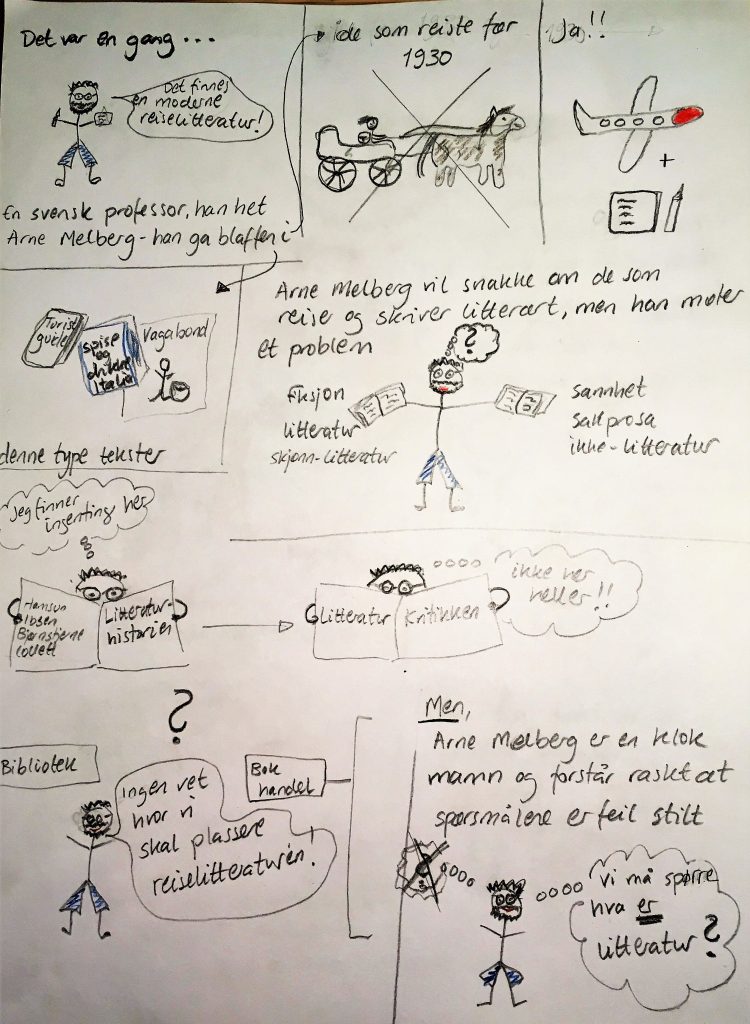 Det var en gang ...
Det finnes
en moderne
reiselitteratur!
En svensk professor, han het
Arne Melberg - han ga blaffen i
i de som reiste før
1930
Ja!!
+
Turist
guide
spise
og
drikke
Italia
Vagabond
denne type tekster
Arne Melberg vil snakke om de som
reise og skriver litterært, men han møter
et problem
?
fiksjon
litteratur
skjønn-litteratur
sannhet
sakprosa
ikke-litteratur
Jeg finner
ingenting her
Hamsun
Ibsen
Bjørnstjerne
Collett
Litteratur-
historien
Litteratur
Kritikken
ikke her
heller!!
?
Bibliotek
Bok
handel
ingen vet
hvor vi
skal plassere
reiselitteraturen!
Men,
Arne Melberg er en klok
mann og forstår raskt at
spørsmålene er feil stilt
Vi må spørre
hva er
litteratur?